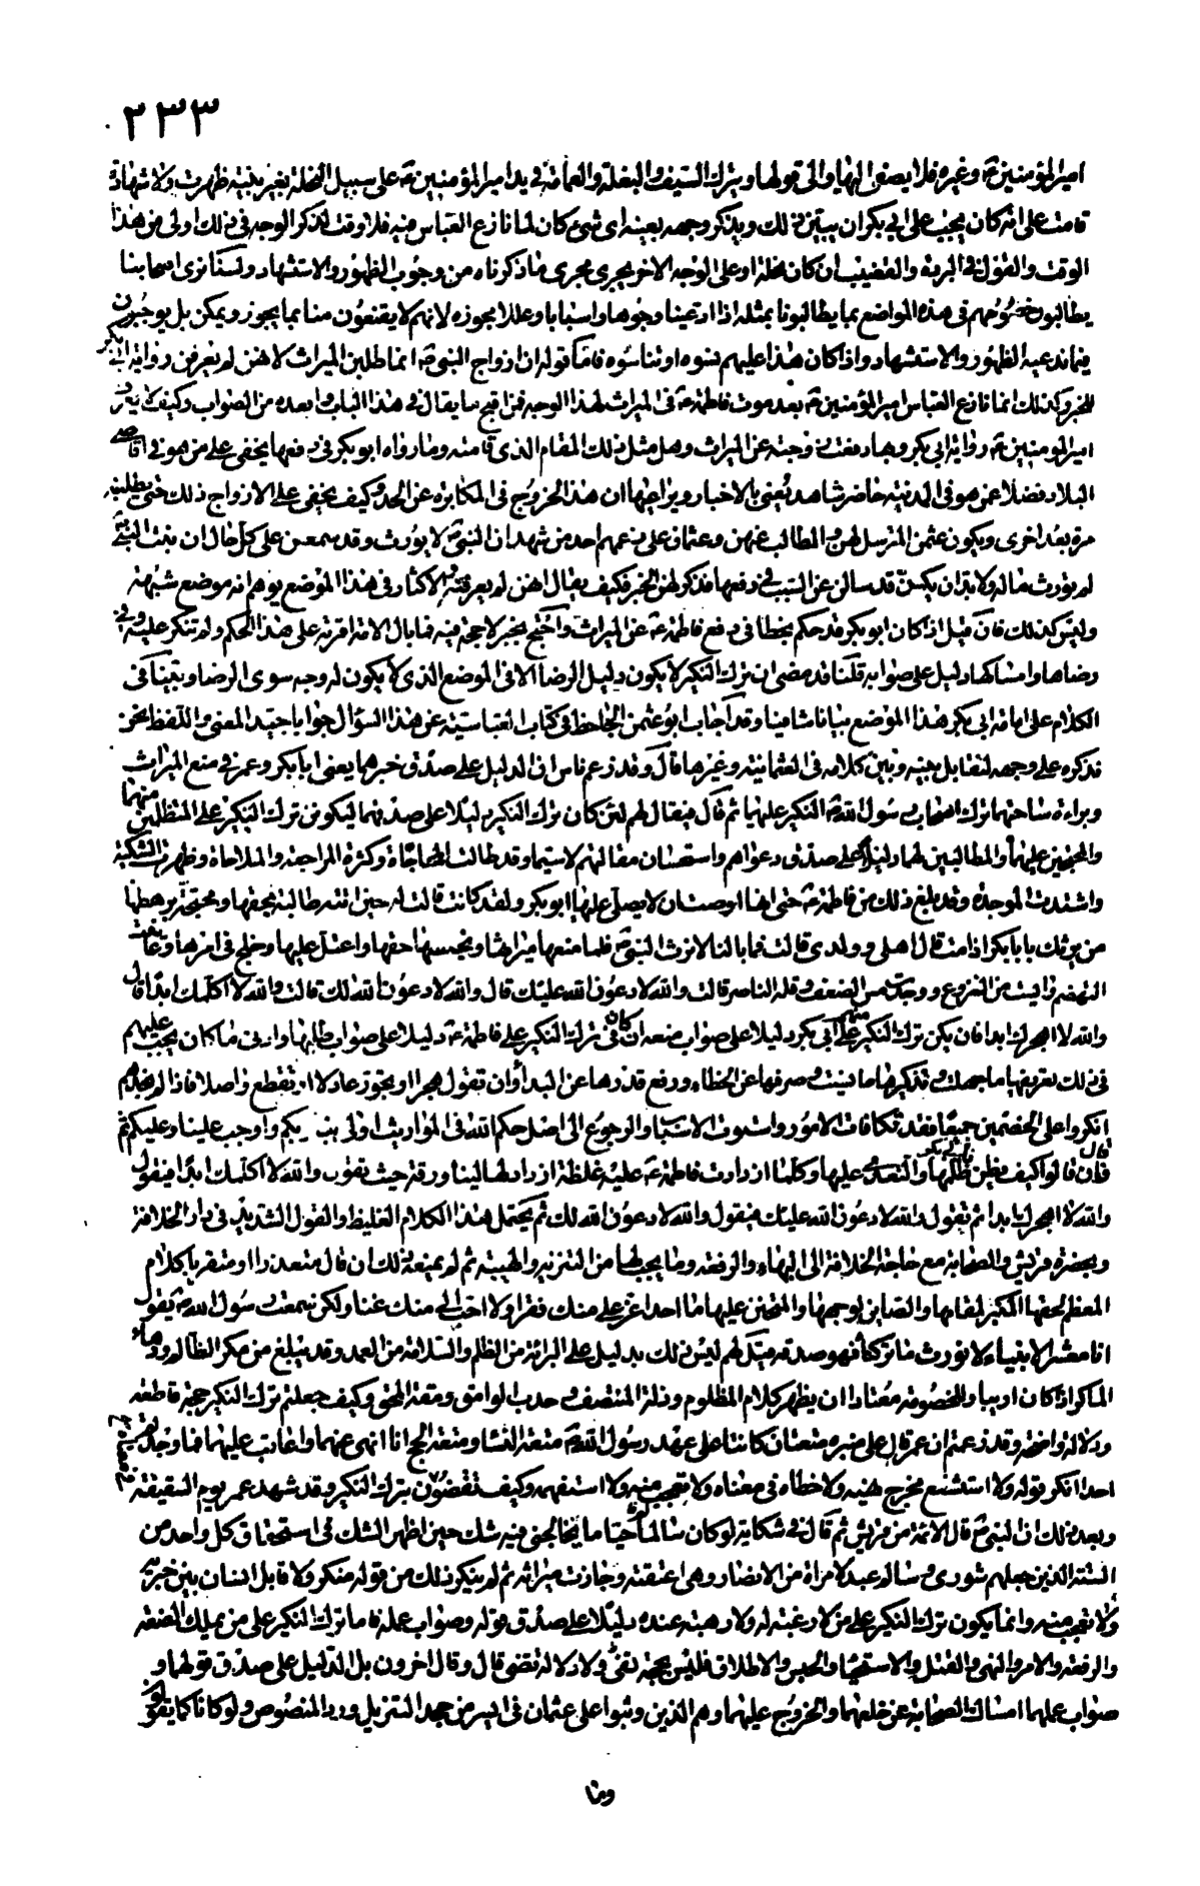 ٢٣٣
امير المؤمنين ع وغيره فلا يصغى اليها والى قولها ويترك السيف والبغلة والعمامة في يد امير المؤمنين ع على سبيل النحلة بغير بينة ظهرت ولا شهادة
قامت على انه كان يجب على ابي بكر ان يبين ذلك ويذكر وجهه بعينه اى شئ كان لما نازع العباس فيه فلا وقت لذكر الوجه في ذلك اولى من هذا
الوقت والقول في البردة والقضيب ان كان نحلة او على الوجه الاخر يجرى مجرى ما ذكرناه من وجوب الظهور والاستشهاد ولسنا نرى اصحابنا
يطالبون نفوسهم في هذه المواضع بما يطالبونا بمثله اذا ادعينا وجوها واسبابا وعللا مجوزه لانهم لا يقنعون منا بما يجوز ويمكن بل يوجبون
فيما ندعيه الظهور والاستشهاد واذا كان هذا عليهم نسوه او تناسوه فاما قوله ان ازواج النبي ص انما طلبن الميراث لانهن لم يعرفن رواية ابي بكر
للخبر وكذلك انما نازع العباس امير المؤمنين ع بعد موت فاطمة ع في الميراث لهذا الوجه فمن اقبح ما يقال في هذا الباب وابعده من الصواب وكيف لا يعرف
امير المومنين ع رواية ابي بكر وبها دفعت زوجته عن الميراث وهل مثل ذلك المقام الذى قامته وما رواه ابو بكر في دفعها يخفى على من هو في اقاصى
البلاد فضلا عمن هو في المدينة حاضر شاهد يعنى بالاخبار ويراعيها ان هذا لخروج في المكابرة عن الحد وكيف يخفى على الازواج ذلك حتى يطلبنه
مرة بعد اخرى ويكون عثمن المرسل لهن والمطالب عنهن وعثمان على زعمهم احد من شهد ان النبي ص لا يورث وقد سمعن على كل حال ان بنت النبي ص
لم يورث ماله ولا بد ان يكن قد سالن عن السبب في دفعها فذكر لهن الخبر فكيف يقال انهن لم يعرفنه والاكثار في هذا الموضع يوهم انه موضع شبهة
وليس كذلك فان قيل اذا كان ابو بكر قد حكم بخطا في دفع فاطمة ع عن الميراث واحتج بخبر لا حجة فيه فما بال الامة اقرته على هذا الحكم ولم تنكر عليه وفي
رضاها وامساكها دليل على صوابه قلنا قد مضى ان ترك النكير لا يكون دليل الرضا الا في الموضع الذى لا يكون له وجه سوى الرضا وبينا في
الكلام على امامة ابي بكر هذا الموضع بيانا شافيا وقد اجاب ابو عثمن الجاحظ في كتاب العباسية عن هذا السؤال جوابا جيد المعنى واللفظ نحن
نذكره على وجهه لنقابل بينه وبين كلامه في العثمانية وغيرها قال وقد زعم ناس ان الدليل على صدق خبرهما يعنى ابا بكر وعمر في منع الميراث
وبراءة ساحتهما ترك اصحاب رسول الله ص النكير عليهما ثم قال فيقال لهم لئن كان ترك النكير دليلا على صدقهما ليكونن ترك النكير على المتظلمين منهما
والمحتجين عليهما والمطالبين لهما دليلا على صدق دعواهم واستحسان مقالتهم لا سيما وقد طالت المحاجاة وكثرة المراجعة والملاحاة وظهرت الشكية
واشتدت الموجدة وقد بلغ ذلك من فاطمة ع حتى انها اوصت ان لا يصلى عليها ابو بكر ولقد كانت قالت له حين اتته طالبة بحقها ومحتجة برهطها
من يرثك يا ابا بكر اذا مت قال اهلى وولدى قالت فما بالنا لا نرث النبي ص فلما منعها ميراثها وبخسها حقها واعتل عليها وجلح في امرها وعاينت
التهضم وايست من النزوع ووجدت مس الضعف وقلة الناصر قالت والله لادعون الله عليك قال والله لادعون الله لك قالت والله لا اكلمك ابدا قال
والله لا اهجرك ابدا فان يكن ترك النكير منهم على ابي بكر دليلا على صواب منعه ان في ترك النكير على فاطمة ع دليلا على صواب طلبها وادنى ما كان يجب عليهم
في ذلك تعريفها ما جهلت وتذكيرها ما نسيت وصرفها عن الخطاء ورفع قدرها عن البذاء وان تقول هجرا او تجور عادلا او تقطع واصلا فاذا لم نجدهم
انكروا على الخصمين جميعا فقد تكافات الامور واستوت الاسباب والرجوع الى اصل حكم الله في المواريث اولى بنا وبكم واوجب علينا وعليكم ثم قال
فان قالوا كيف يظن بابي بكر ظلمها والتعدى عليها وكلما ازدادت فاطمة ع عليه غلظة ازداد لها لينا ورقة حيث تقول والله لا اكلمك ابدا فيقول
والله لا اهجرك ابدا ثم تقول والله لادعون الله عليك فيقول والله لادعون الله لك ثم يحتمل هذا الكلام الغليظ والقول الشديد في دار الخلافة
وبحضرة قريش والصحابة مع حاجة الخلافة الى البهاء والرفعة وما يجب لها من التنزيه والهيبة ثم لم يمنعه ذلك ان قال متعذرا او متقربا كلام
المعظم لحقها المكبر لمقامها والصاين لوجهها والمتحنن عليها ما احد اعز على منك فقرا ولا احب الى منك غنا ولكن سمعت رسول الله ص يقول
انا معشر الانبياء لا نورث ما تركناه فهو صدقة قيل لهم ليس ذلك بدليل على البراءة من الظلم والسلامة من العمد وقد يبلغ من مكر الظالم ودهاء
الماكر اذا كان اريبا وللخصومة معتادا ان يظهر كلام المظلوم وذلة المنتصف وحدب الوامق ومقة المحق وكيف جعلتم ترك النكير حجة قاطعة
ودلالة واضحة وقد زعمتم ان عمر قال على منبره متعتان كانتا على عهد رسول الله ص متعة النساء ومتعة الحج انا انهى عنهما واعاقب عليهما فما وجدتم
احدا انكر قوله ولا استشنع مخرج نهيه ولا خطاه في معناه ولا تعجب منه ولا استفهمه وكيف تقضون بترك النكير وقد شهد عمر يوم السقيفة
وبعد ذلك ان النبي ص قال الائمة من قريش ثم قال في شكايته لو كان سالم حيا ما يخالجنى فيه شك حين اظهر الشك في استحقاق كل واحد من
الستة الذين جعلهم شورى وسالم عبد لامراة من الانصار وهى اعتقته وحازت ميراثه ثم لم ينكر ذلك من قوله منكر ولا قابل انسان بين خبريه
ولا تعجب منه وانما يكون ترك النكير على من لا رغبة له ولا رهبة عنده دليلا على صدق قوله وصواب عمله فاما ترك النكير على من يملك الضعة
والرفعة والامر والنهى والقتل والاستحياء والحبس والاطلاق فليس بحجة تقى ولا دلالة تقضى قال وقال اخرون بل الدليل على صدق قولهما و
صواب عملهما امساك الصحابة عن خلعهما والخروج عليهما وهم الذين وثبوا على عثمان في ايسر من جحد التنزيل ورد المنصوص ولو كانا كما يقولون
وما